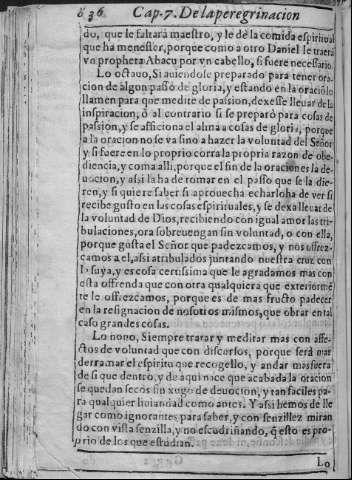 836 Cap. 7. De la peregrinacion
do, que le faltarà maestro, y le dè la comida espiritual
que ha menester, porque como a otro Daniel le traerà
vn propheta Abacu por vn cabello, si fuere necessario.
Lo octauo, Si auiendole preparado para tener ora-
cion de algun passo de gloria, y estando en la oraciõ lo
llamen para que medite de passion, dexesse lleuar de la
inspiracion, ò al contrario si se preparò para cosas de
passion, y se afficiona el alma a cosas de gloria, porque
a la oracion no se va sino a hazer la voluntad del Señor
y si fuere en lo proprio corra la propria razon de obe-
diencia, y coma alli, porque el fin de la oracion es la de-
uocion, y assi la ha de tomar en el passo que se la die-
ren, y si quiere saber si aprouecha echarloha de ver si
recibe gusto en las cosas espirituales, y se dexa lleuar de
la voluntad de Dios, recibiendo con igual amor las tri-
bulaciones, ora sobreuengan sin voluntad, o con ella,
porque gusta el Señor que padezcamos, y nos offrez-
camos a el, assi atribulados juntando nuestra cruz con
la suya, y es cosa certissima que le agradamos mas con
esta offrenda que con otra qualquiera que exteriormē
te le offrezcamos, porque es de mas fructo padecer
en la resignacion de nosotros mismos, que obrar en tal
caso grandes cosas.
Lo nono, Siempre tratar y meditar mas con affe-
ctos de voluntad que con discursos, porque serà mas
derramar el espiritu que recogello, y andar mas fuera
de si que dentro, y de aqui nace que acabada la oracion
se quedan secos sin xugo de deuocion, y tan faciles pa-
ra qualquier liuiandad como antes. Y assi hemos de lle
gar como ignorantes para saber, y con senzillez miran
do con vista senzilla, y no escudriñando, q̃ esto es pro-
prio de los que estudian.
Lo